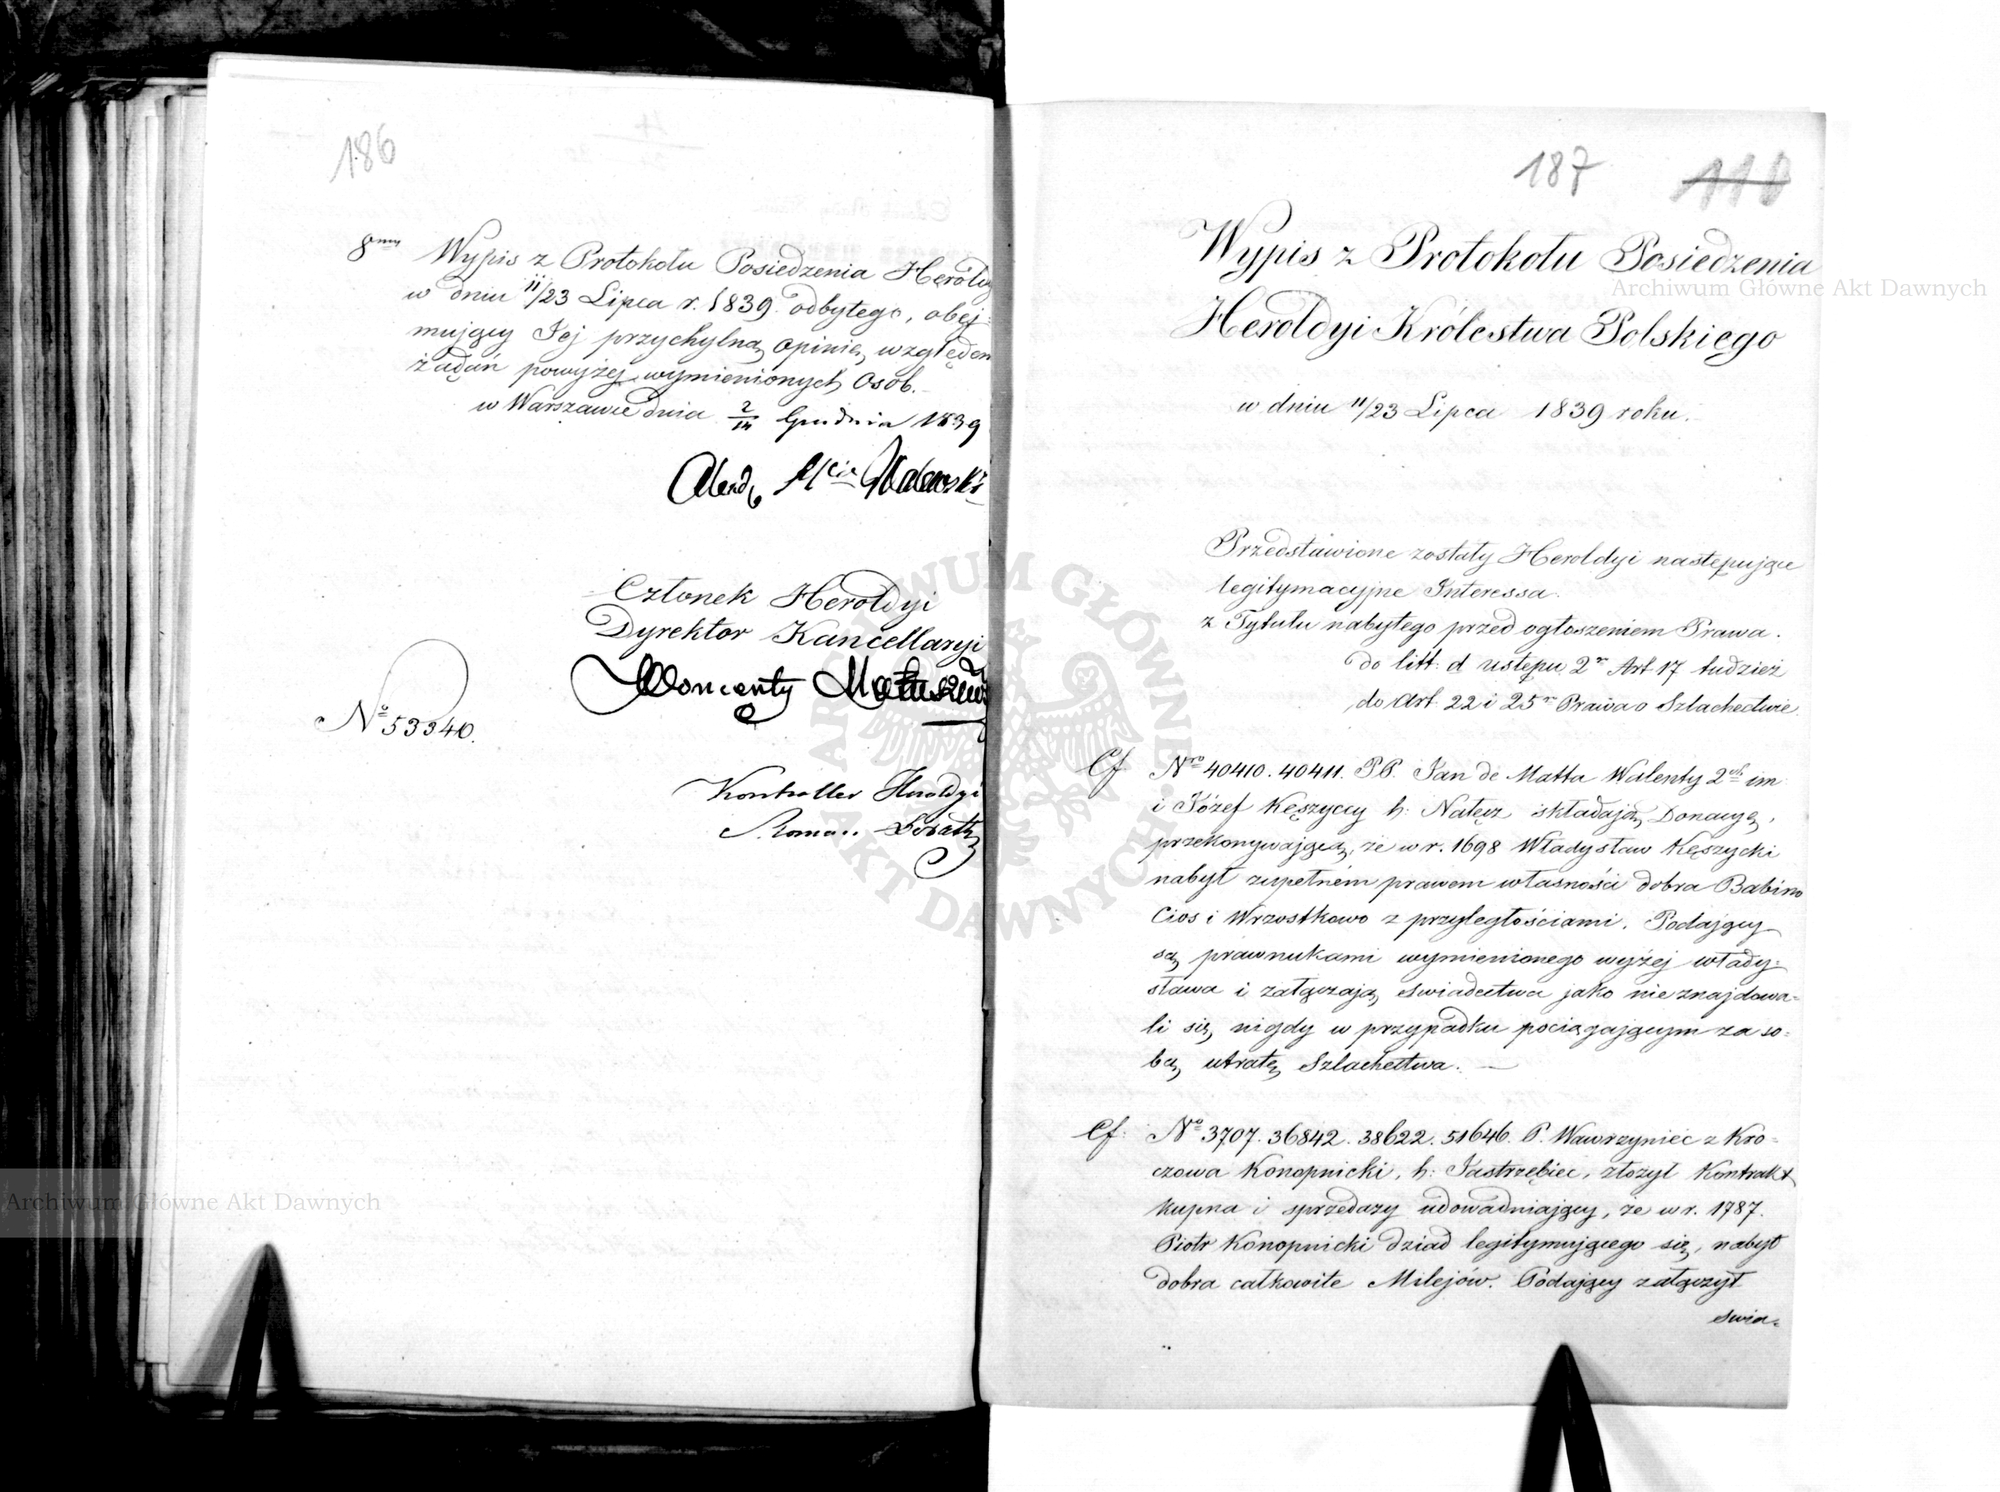 186
8my Wypis z Protokołu Posiedzenia Heroldyi
w dniu 11/23 Lipca r. 1839 odbytego, obej-
mujący Jej przychylną opinię, względem
żądań powyżej wymienionych Osób.
w Warszawie dnia 2/14 Grudnia 1839
Członek Heroldyi
Dyrektor Kancellaryi
No 53340.
Kontroller Heroldyi
Roman
187
Wypis z Protokołu Posiedzenia
Heroldyi Królestwa Polskiego
w dniu 11/23 Lipca 1839 roku.
Przedstawione zostały Heroldyi następujące
legitymacyjne Interessa.
z Tytułu nabytego przed ogłoszeniem Prawa.
do litt: d ustępu 2o Art 17 tudzież
do Art. 22 i 25o Prawa o Szlachectwie
Cf. Nro 40410. 40411. PP. Jan de Matta Walenty 2ch im
i Józef Kęszyccy h: Nałęcz składają Donacyę,
przekonywającą, że w r. 1698 Władysław Kęszycki
nabył zupełném prawem własności dobra Babino
Cios i Wrzostkowo z przyległościami. Podający
są prawnukami wymienionego wyżej włady-
sława i załączają świadectwa jako nie znajdowa-
li się nigdy w przypadku pociągającym za so-
bą utratę Szlachectwa. —
Cf: No 3707. 36842. 38622. 51646. P. Wawrzyniec z Kro-
czowa Konopnicki, h: Jastrzębiec, złożył Kontrakt
kupna i sprzedaży udowadniający, że w r. 1787.
Piotr Konopnicki dziad legitymującego się, nabył
dobra całkowite Milejów. Podający załączył
swia-
Archiwum Główne Akt Dawnych
Archiwum Główne Akt Dawnych
ARCHIWUM GŁÓWNE AKT DAWNYCH